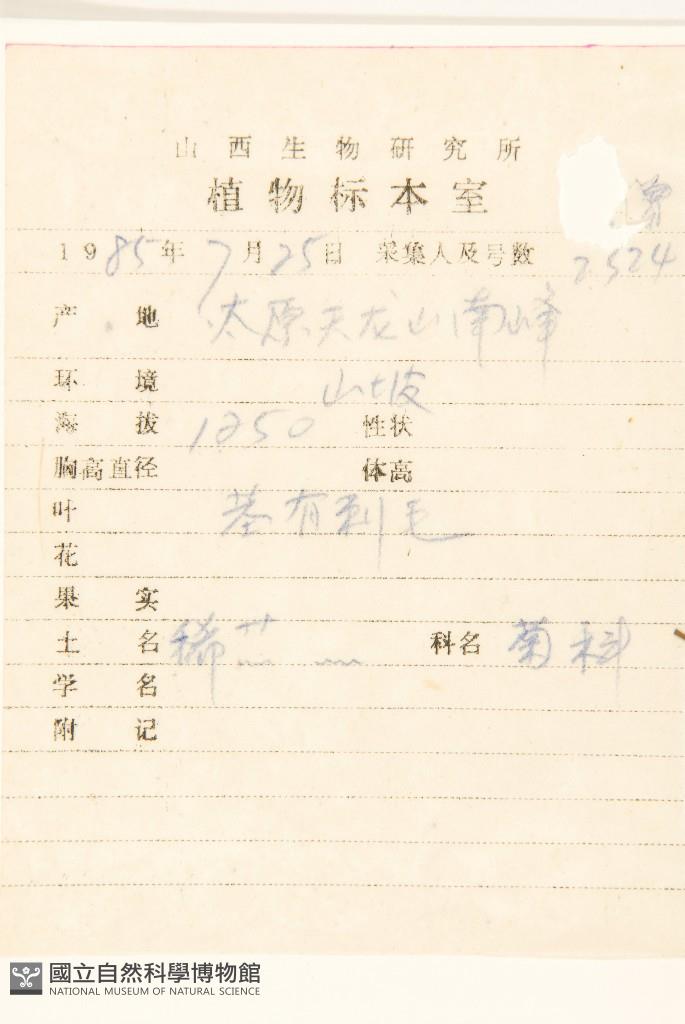 山西生物研究所
植物标本室
1985年7月25日 采集人及号数 2524
产地 太原天龙山南峰
环境 山坡
海拔 1250 性状
胸高直径 体高
叶 基有刺毛
花
果实
土名 科名 菊科
学名
附记
國立自然科學博物館
NATIONAL MUSEUM OF NATURAL SCIENCE